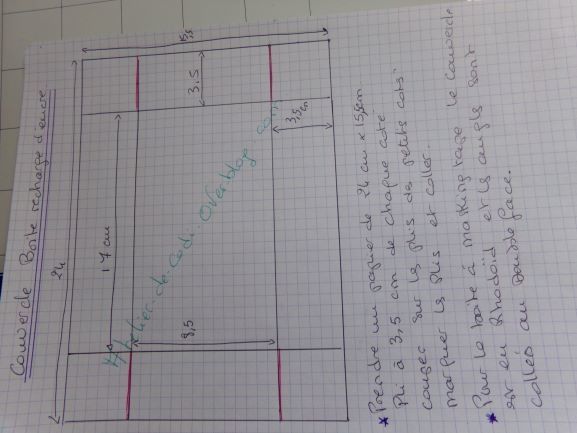 Couvercle Boîte recharge d'encre
24
15,5
3.5
3,5 cm
17 cm
8,5
Atelier-de-Cadi.Over-blog.com
* Prendre un papier de 24 cm x 15,5cm
Pli à 3,5 cm de chaque coté.
couper sur les plis des petits cotés
marquer les plis et coller.
* Pour la boîte à masking tape le couvercle
est en Rhodoïd et les angles sont
collés au double face.